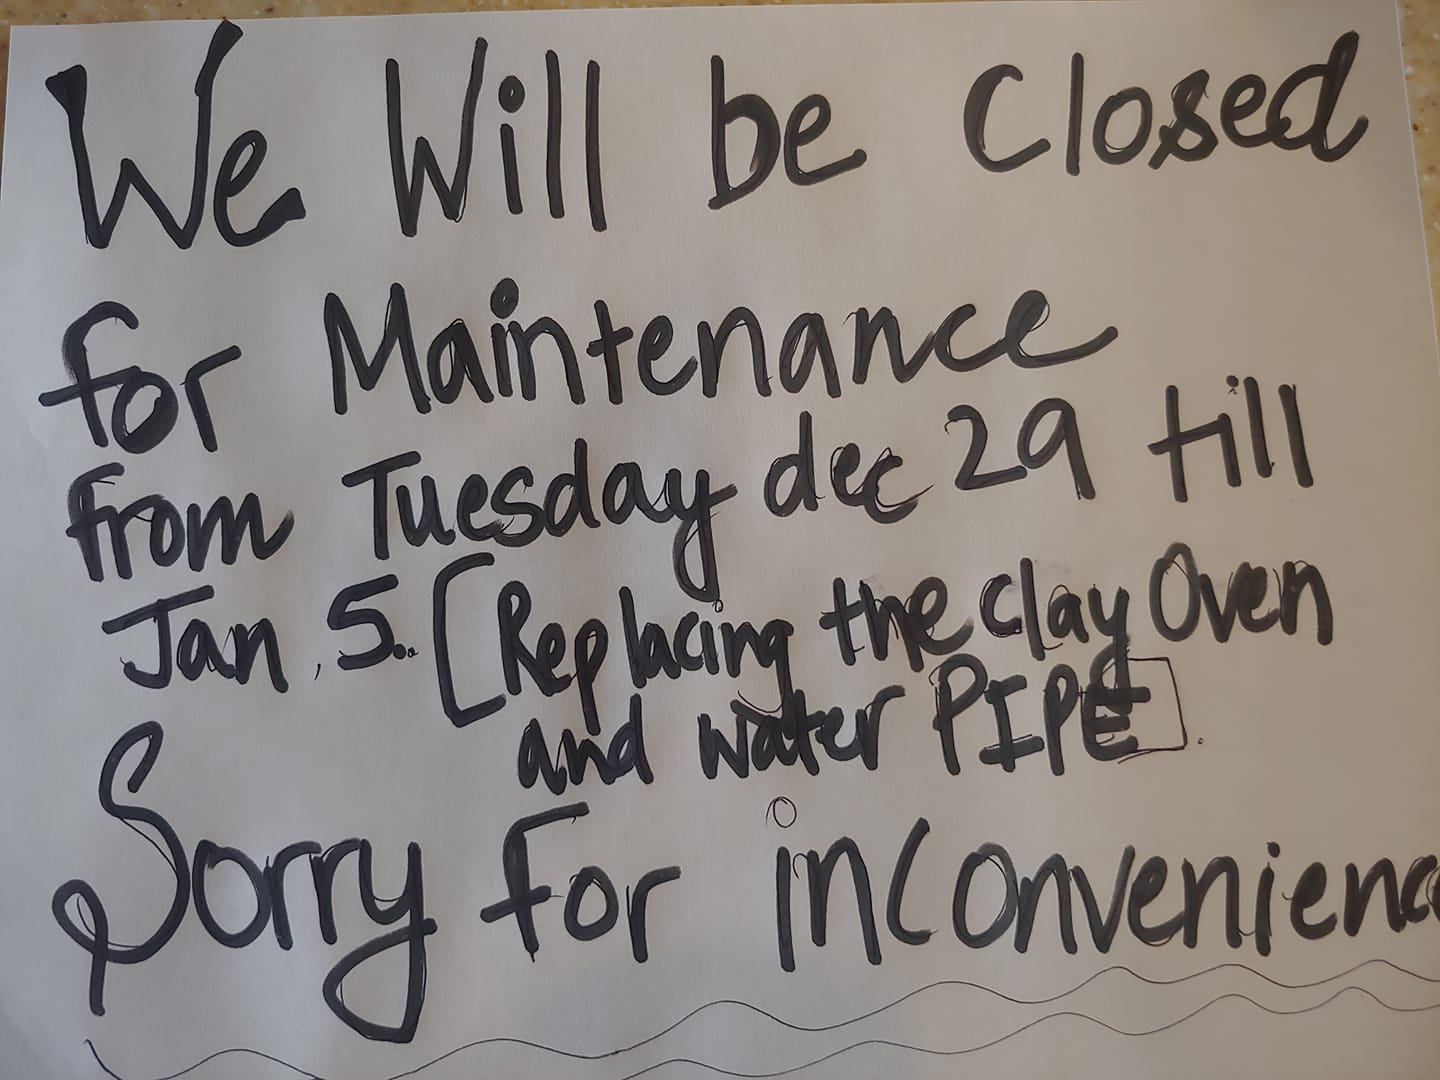 We Will be Closed
for Maintenance
from Tuesday dec 29 till
Jan, 5.. [Replacing the clay Oven
and water PIPE].
Sorry For inconvenienc